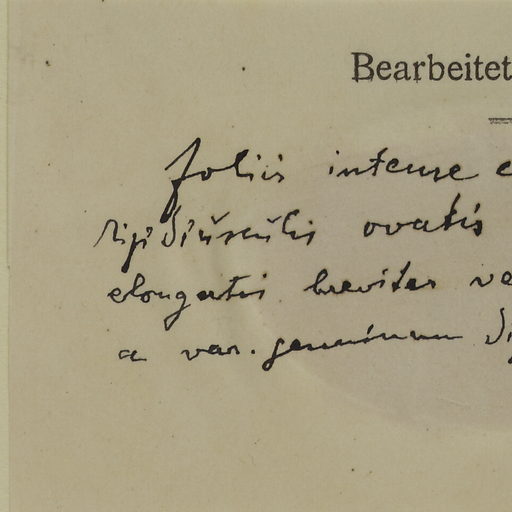 Bearbeitet
foliis intense
rigidiusculis ovatis
elongatis breviter
a var. genuinum